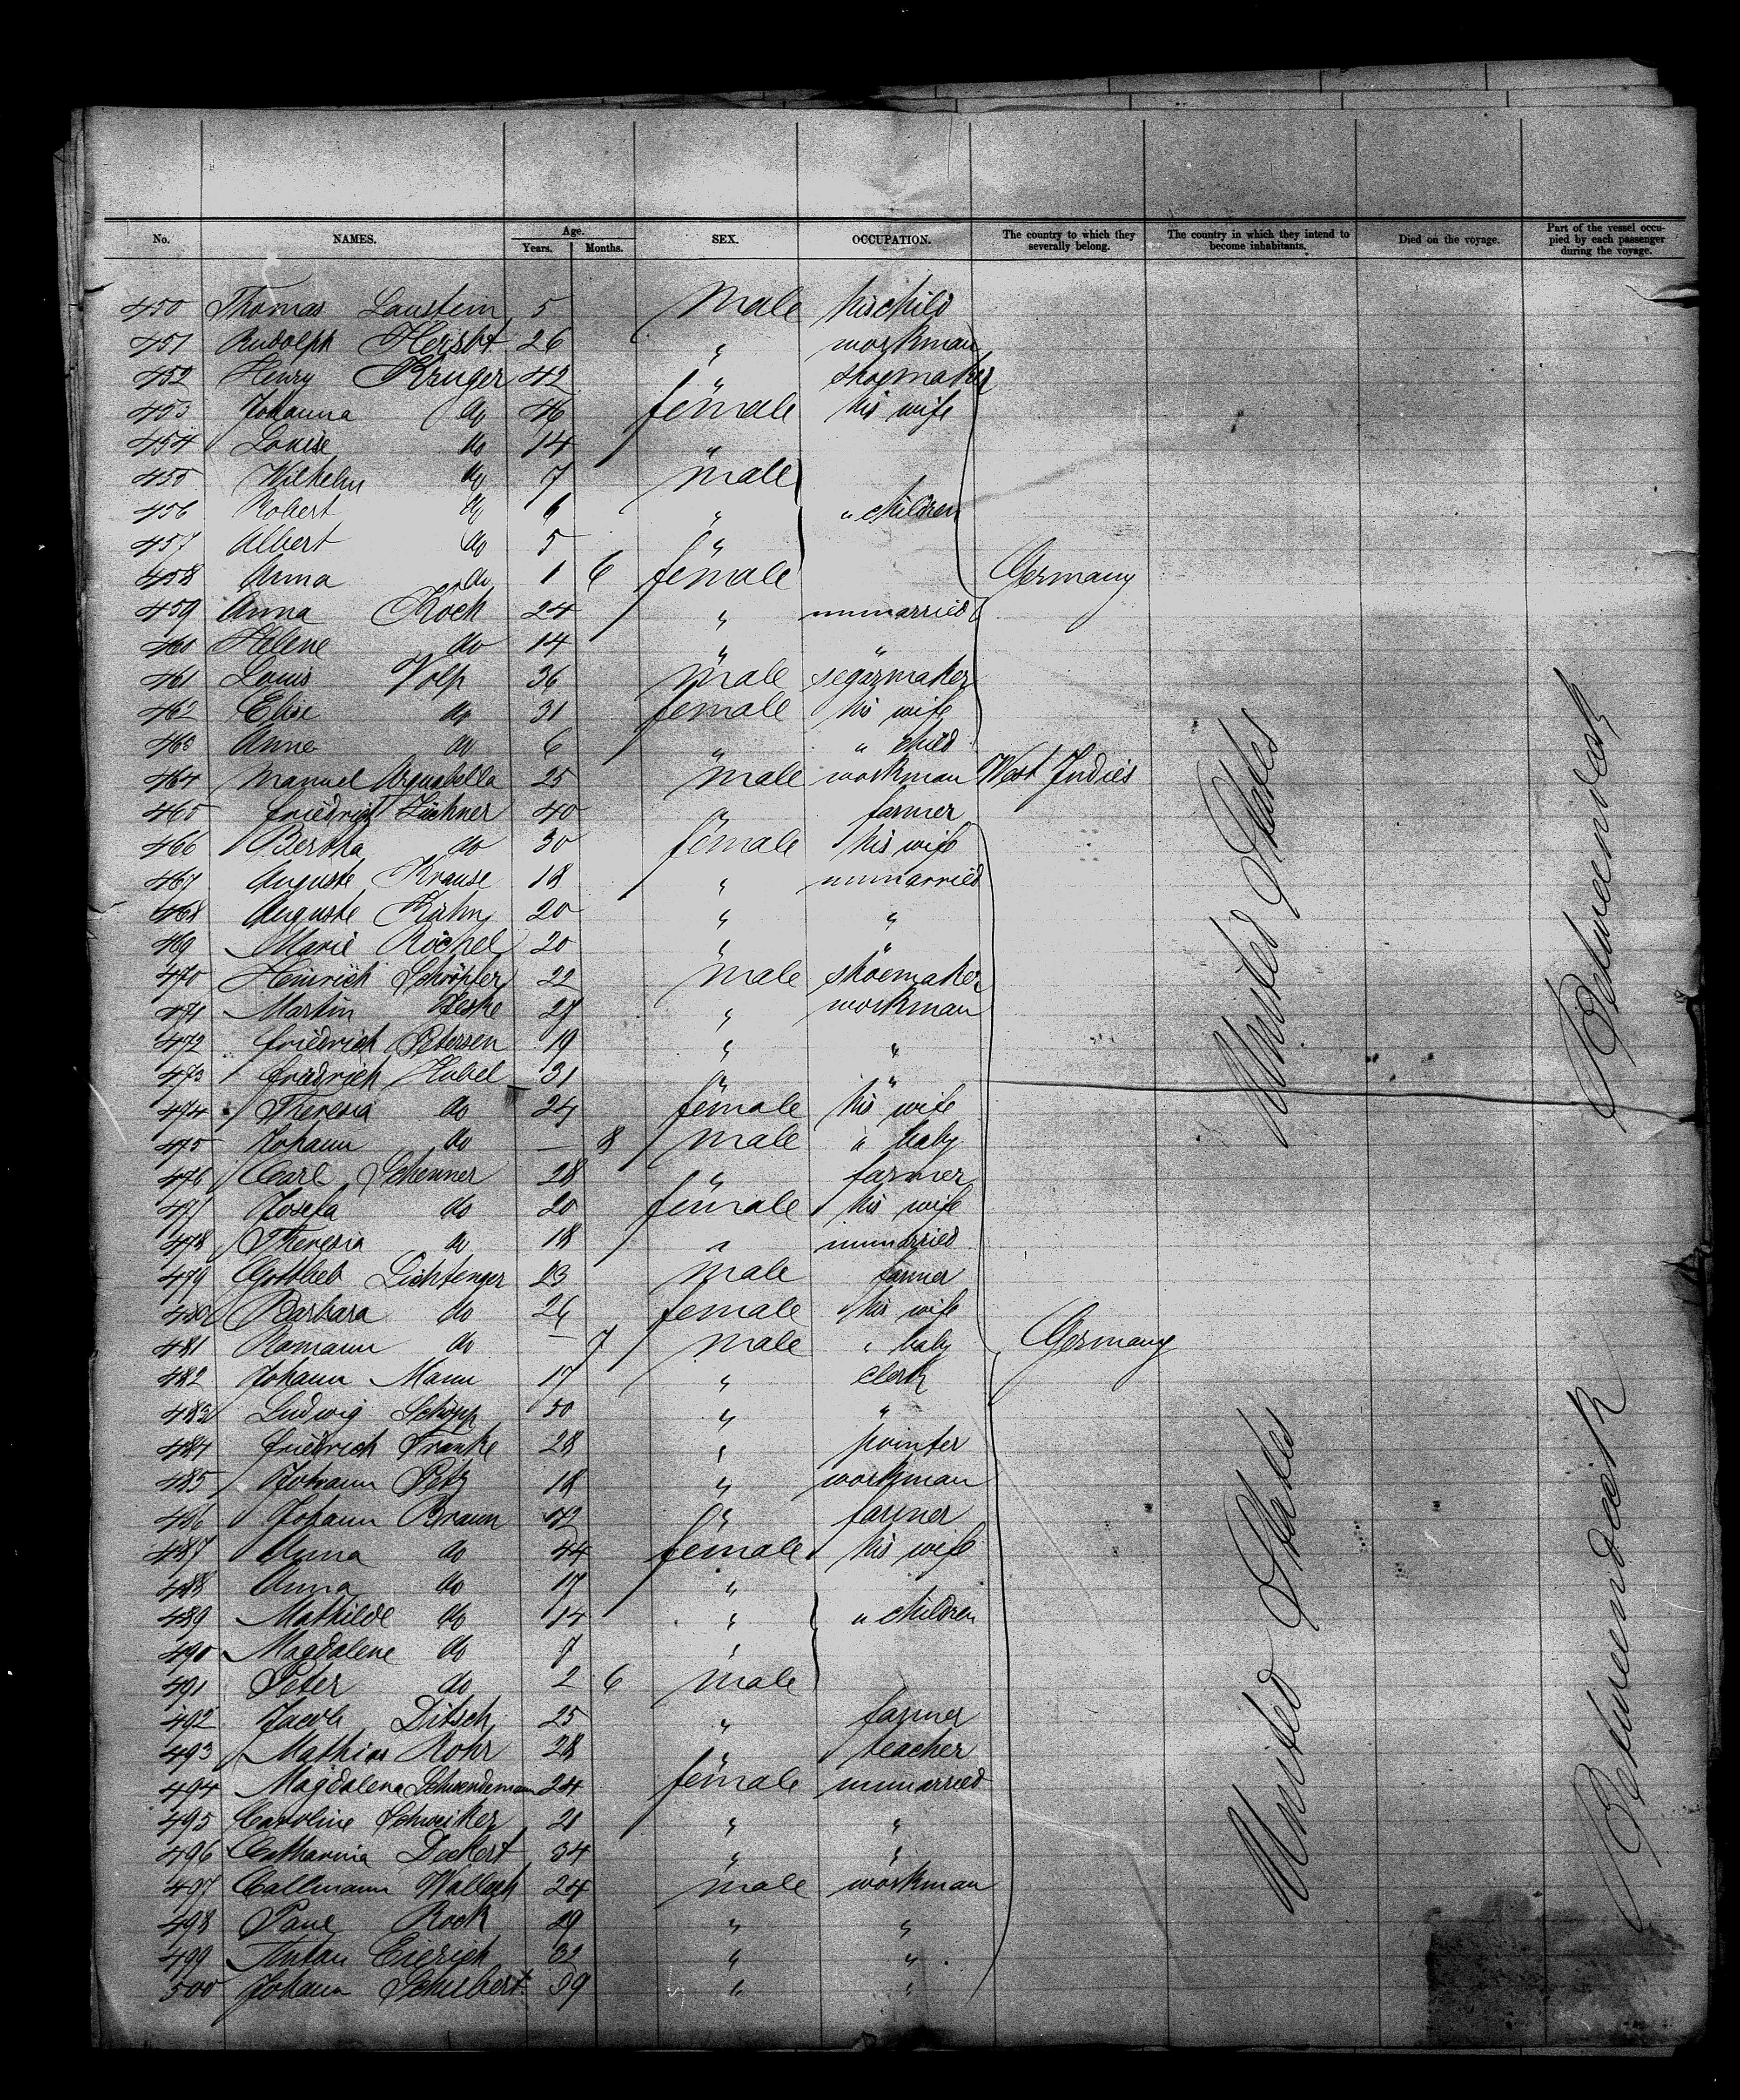 No. NAMES. Age. Years. Months. SEX. OCCUPATION. The country to which they severally belong. The country in which they intend to become inhabitants. Died on the voyage. Part of the vessel occupied by each passenger during the voyage.
450 Thomas Laustem 5 Male his child
451 Rudolph Herbst 26 " workman
452 Henry Kruger 42 " shoemaker
453 Johanna do 46 female his wife
454 Louise do 14 "
455 Wilhelm do 7 male
456 Robert do 6 " " children
457 Albert do 5 "
458 Anna do 1 6 female Germany
459 Anna Kock 24 " unmarried
460 Helene do 14 " "
461 Louis Volp 36 male segarmaker
462 Elise do 31 female his wife
463 Anna do 6 " " child
464 Manuel 25 male workman West Indies
465 Friedrich Lüchner 40 " farmer
466 Bertha do 30 female his wife
467 Auguste Krause 18 " unmarried
468 Auguste Kühn 20 " "
469 Marie Röchel 20 " "
470 Heinrich Schröpfer 22 male shoemaker
471 Martin Jeske 27 " workman
472 Friedrich Petersen 19 " "
473 Friedrich Hobel 31 " "
474 Theresia do 24 female his wife
475 Johann do — 8 male " baby
476 Carl Schenner 28 " farmer
477 Josefa do 20 female his wife
478 Theresia do 18 " unmarried
479 Gottlieb Lichtenger 23 male farmer
480 Barbara do 24 female his wife
481 Romann do — 7 male " baby Germany
482 Johann Mann 17 " clerk
483 Ludwig Schöpp 50 " "
484 Friedrich Franke 28 " pointer
485 Johann Petz 18 " workman
486 Johann Braun 42 " farmer
487 Anna do 44 female his wife
488 Anna do 17 "
489 Mathilde do 14 " " children
490 Magdalene do 7 "
491 Peter do 2 6 male
492 Jacob Ditsch 25 " farmer
493 Mathias Rohr 28 " teacher
494 Magdalena Schwendemann 24 female unmarried
495 Caroline Schweiker 21 " "
496 Catharina Deckert 34 " "
497 Callmann Wallach 24 male workman
498 Paul Rock 29 " "
499 Anton Eierich 32 " "
500 Johann Schubert 39 " "
United States
Betweendeck
United States
Betweendeck